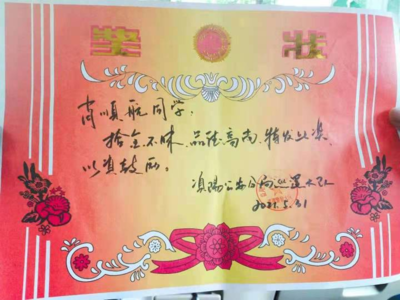 奖 状
肖顺航同学:
拾金不昧,品德高尚,特发此奖,
以资鼓励。
公安分局巡逻大队
2021.5.31